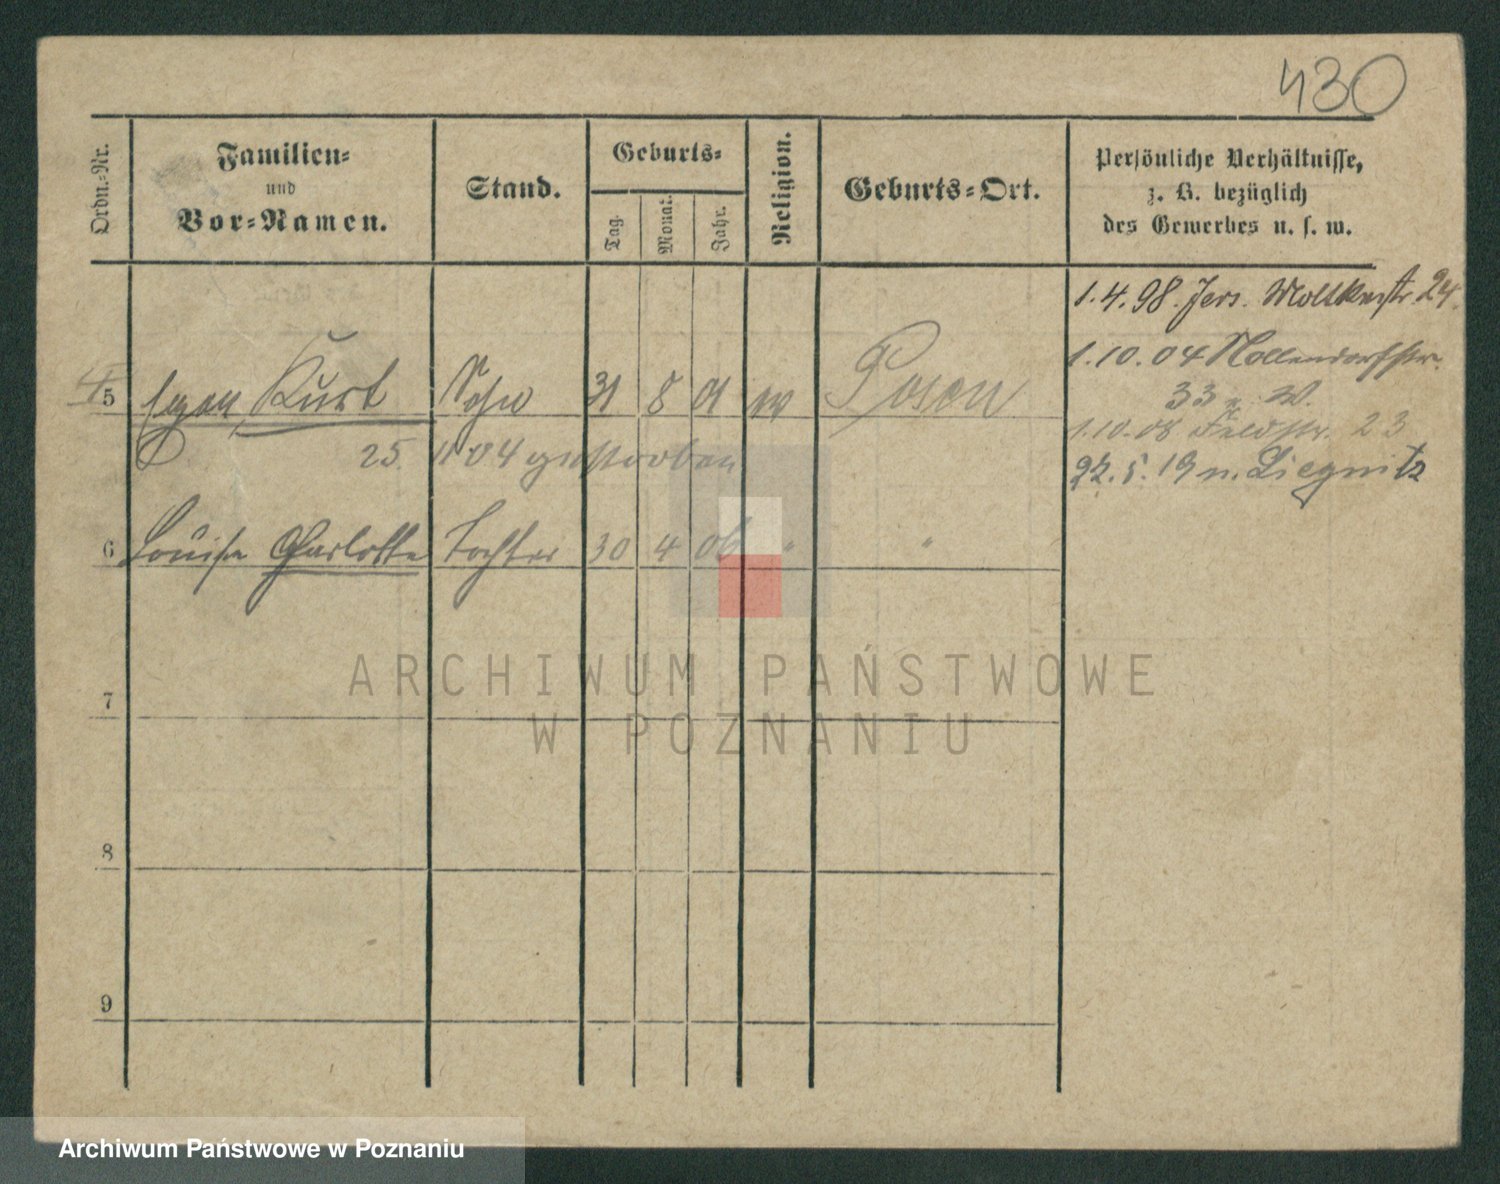 430
Ordn.-Nr.
Familien-
und
Vor-Namen.
Stand.
Geburts-
Tag.
Monat.
Jahr.
Religion.
Geburts-Ort.
Persönliche Verhältnisse,
z. B. bezüglich
des Gewerbes u. s. w.
1.4.98. Jers. Moltkestr. 24.
1.10.04 Nollendorfstr.
33
1.10.08 Feldstr. 23
5 Egon Kurt Sohn 31 8 01 Posen
25. 11 04 gestorben
22.5.19 n. Liegnitz
6 Louise Charlotte Tochter 30 4 06 " "
7
8
9
ARCHIWUM PAŃSTWOWE
W POZNANIU
Archiwum Państwowe w Poznaniu